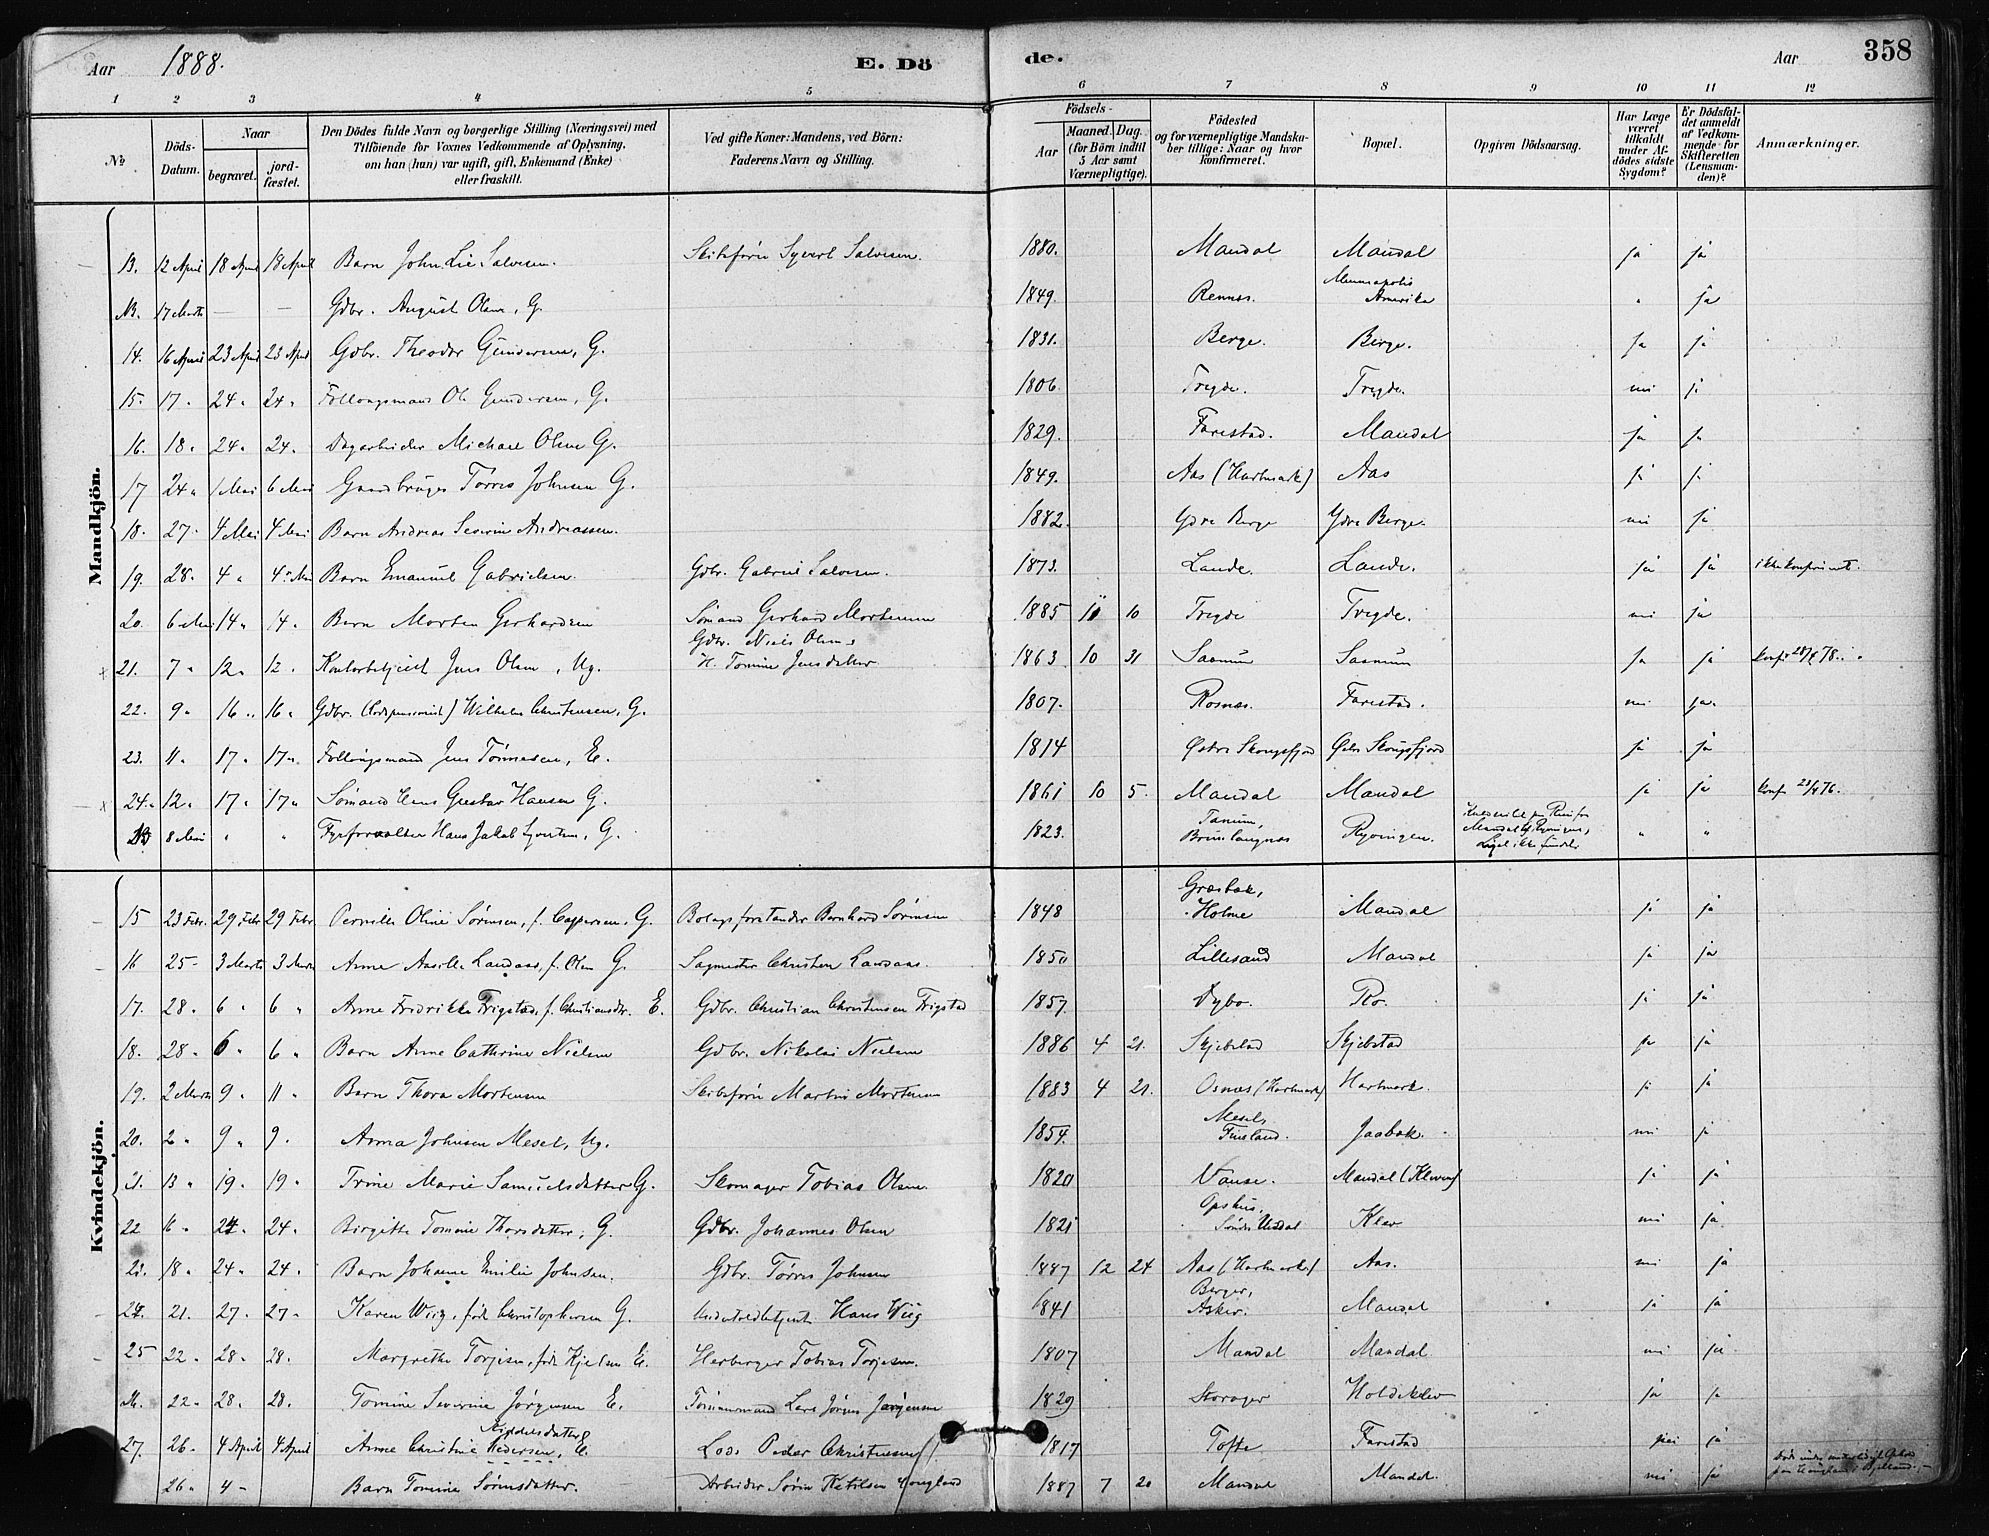 Aar 1888. E. Dö de. Aar 358
1 2 3 4 5 6 7 8 9 10 11 12
No
Döds-Datum.
Naar
begravet.
jord-fæstet.
Den Dödes fulde Navn og borgerlige Stilling (Næringsvei) med
Tilföiende for Voxnes Vedkommende af Oplysning,
om han (hun) var ugift, gift, Enkemand (Enke)
eller fraskilt.
Ved gifte Koner: Mandens, ved Börn:
Faderens Navn og Stilling.
Födsels-
Aar
Maaned. Dag.
(for Börn indtil
5 Aar samt
Værnepligtige).
Födested
og for værnepligtige Mandska-
ber tillige: Naar og hvor
konfirmeret.
Bopæl.
Opgiven Dödsaarsag.
Har Læge
været
tilkaldt
under Af-
dödes sidste
Sygdom?
Er Dödsfal-
det anmeldt
af Vedkom-
mende for
Skifteretten
(Lensman-
den)?
Anmærkninger.
Mandkjön.
13. 12 April 18 April 18 April Barn John Lie Salvesen. Skibsfører Syvert Salvesen. 1880. Mandal Mandal ja ja
17 Marts — — Gdbr. August Olsen, G. 1849. Amerika " ja
14. 16 April 23 April 23 April Gdbr. Theodor Gundersen, G. 1831. Berge. Berge. ja ja
15. 17 " 24 " 24 " Føllougsmand Ole Gundersen, G. 1806. Tregde. Tregde. nei ja
16. 18 " 24 " 24 " Dagarbeider Michael Olsen G. 1829. Farestad. Mandal ja ja
17 24 " 1 Mai 6 Mai Gaardbruger Tørres Johnsen G. 1849. Aas (Hartmark) Aas ja ja
18. 27 " 4 Mai 4 Mai Barn Andreas Severin Andreassen. 1882. Ydre Berge Ydre Berge. nei ja
19. 28 " 4 " 4 Mai Barn Emanuel Gabrielsen. Gdbr. Gabriel Salvesen. 1873. Lande. Lande. ja ja ikke konfirmeret.
20. 6 Mai 14 " 14 " Barn Morten Gerhardsen Sømand Gerhard Mortensen 1885 11 10 Tregde Tregde. nei ja
21. 7 " 12 " 12 " Kontorbetjent Jens Olsen, Ug. Gdbr. Niels Olsen & H. Tomine Jensdatter 1863 10 31 Sasnum Sasnum ja ja
22. 9 " 16 " 16 " Gdbr. (Lodspensionist) Wilhelm Christensen, G. 1807. Rosnæs. Farestad. nei ja.
23. 11 " 17 " 17 " Føllougsmand Jens Tønnesen, E. 1814 Østre Skougsfjord Østre Skougsfjord ja ja
24. 12 " 17 " 17 " Sømand Jens Gustav Hansen G. 1861 10 5. Mandal Mandal ja ja konf. 23/4 76.
8 Mai " " Fyrforvalter Hans Jakob G. 1823. Tanum, Brunlangnæs Ryvingen. Mandal til Ryvingen, Liget ikke fundet " "
Kvindekjön.
15 23 Febr. 29 Febr 29 Febr. Pernille Oline Sørensen, f. Caspersen, G. Bolagsforstander Bernhard Sørensen 1848 Græsbak, Holme Mandal ja ja
16 25 " 3 Marts 3 Marts Anne Aasille Landaas, f. Olsen G. Sagmester Christen Landaas. 1850 Lillesand Mandal ja ja
17. 28 " 6 " 6 " Anne Fredrikke Frigstad, f. Christiansdtr. E. Gdbr. Christian Christensen Frigstad 1857. Dybo. Ro. ja ja
18. 28 " 6 " 6 " Barn Anne Cathrine Nielsen Gdbr. Nikolai Nielsen 1886 4 21. Skjebstad Skjebstad ja ja
19. 2 Marts 9 " 11 " Barn Thora Mortensen Skibsfører Martin Mortensen 1883 4 21. Osnæs (Hartmark) Hartmark. ja ja
20. 2 " 9 " 9. Anna Johnsen Mesel, Ug. 1854. Mesel, Finsland. Jaabæk. nei ja
21. 13 " 19 " 19 " Trine Marie Samuelsdatter G. Skomager Tobias Olsen. 1820 Vanse. Mandal (Kleven) ja ja
22 16 " 24 " 24 " Birgitte Tomine Thorsdatter, G. Gdbr. Johannes Olsen 1821 Opshus, Søndre Undal Klev nei ja
23. 18 " 24 " 24 " Barn Johanne Emilie Johnsen. Gdbr. Tørres Johnsen 1887 12 24 Aas (Hartmark) Aas. nei ja
24. 21. 27 " 27 " Karen Wiig, født Christophersen G. Undertoldbetjent Hans Wiig 1841 Berger, Asker. Mandal ja ja
25 22 " 28 " 28. Margrethe Torjesen, født Kjelsen E. Herberger Tobias Torjesen. 1807 Mandal Mandal nei ja
26. 22 " 28 " 28. Tomine Severine Jørgensen E. Tømmermand Lars Jørgen Jørgensen 1829 Storager Holdeklev ja ja
27. 26 " 4 April 4 April Anne Christine Pedersen, E. Lods Peder Christensen 1817 Tofte Farestad nei ja
26 " 4 " Barn Tomine Sørensdatter. Arbeider Søren Ketilsen Hougland 1887 7 20 Mandal Mandal. nei ja